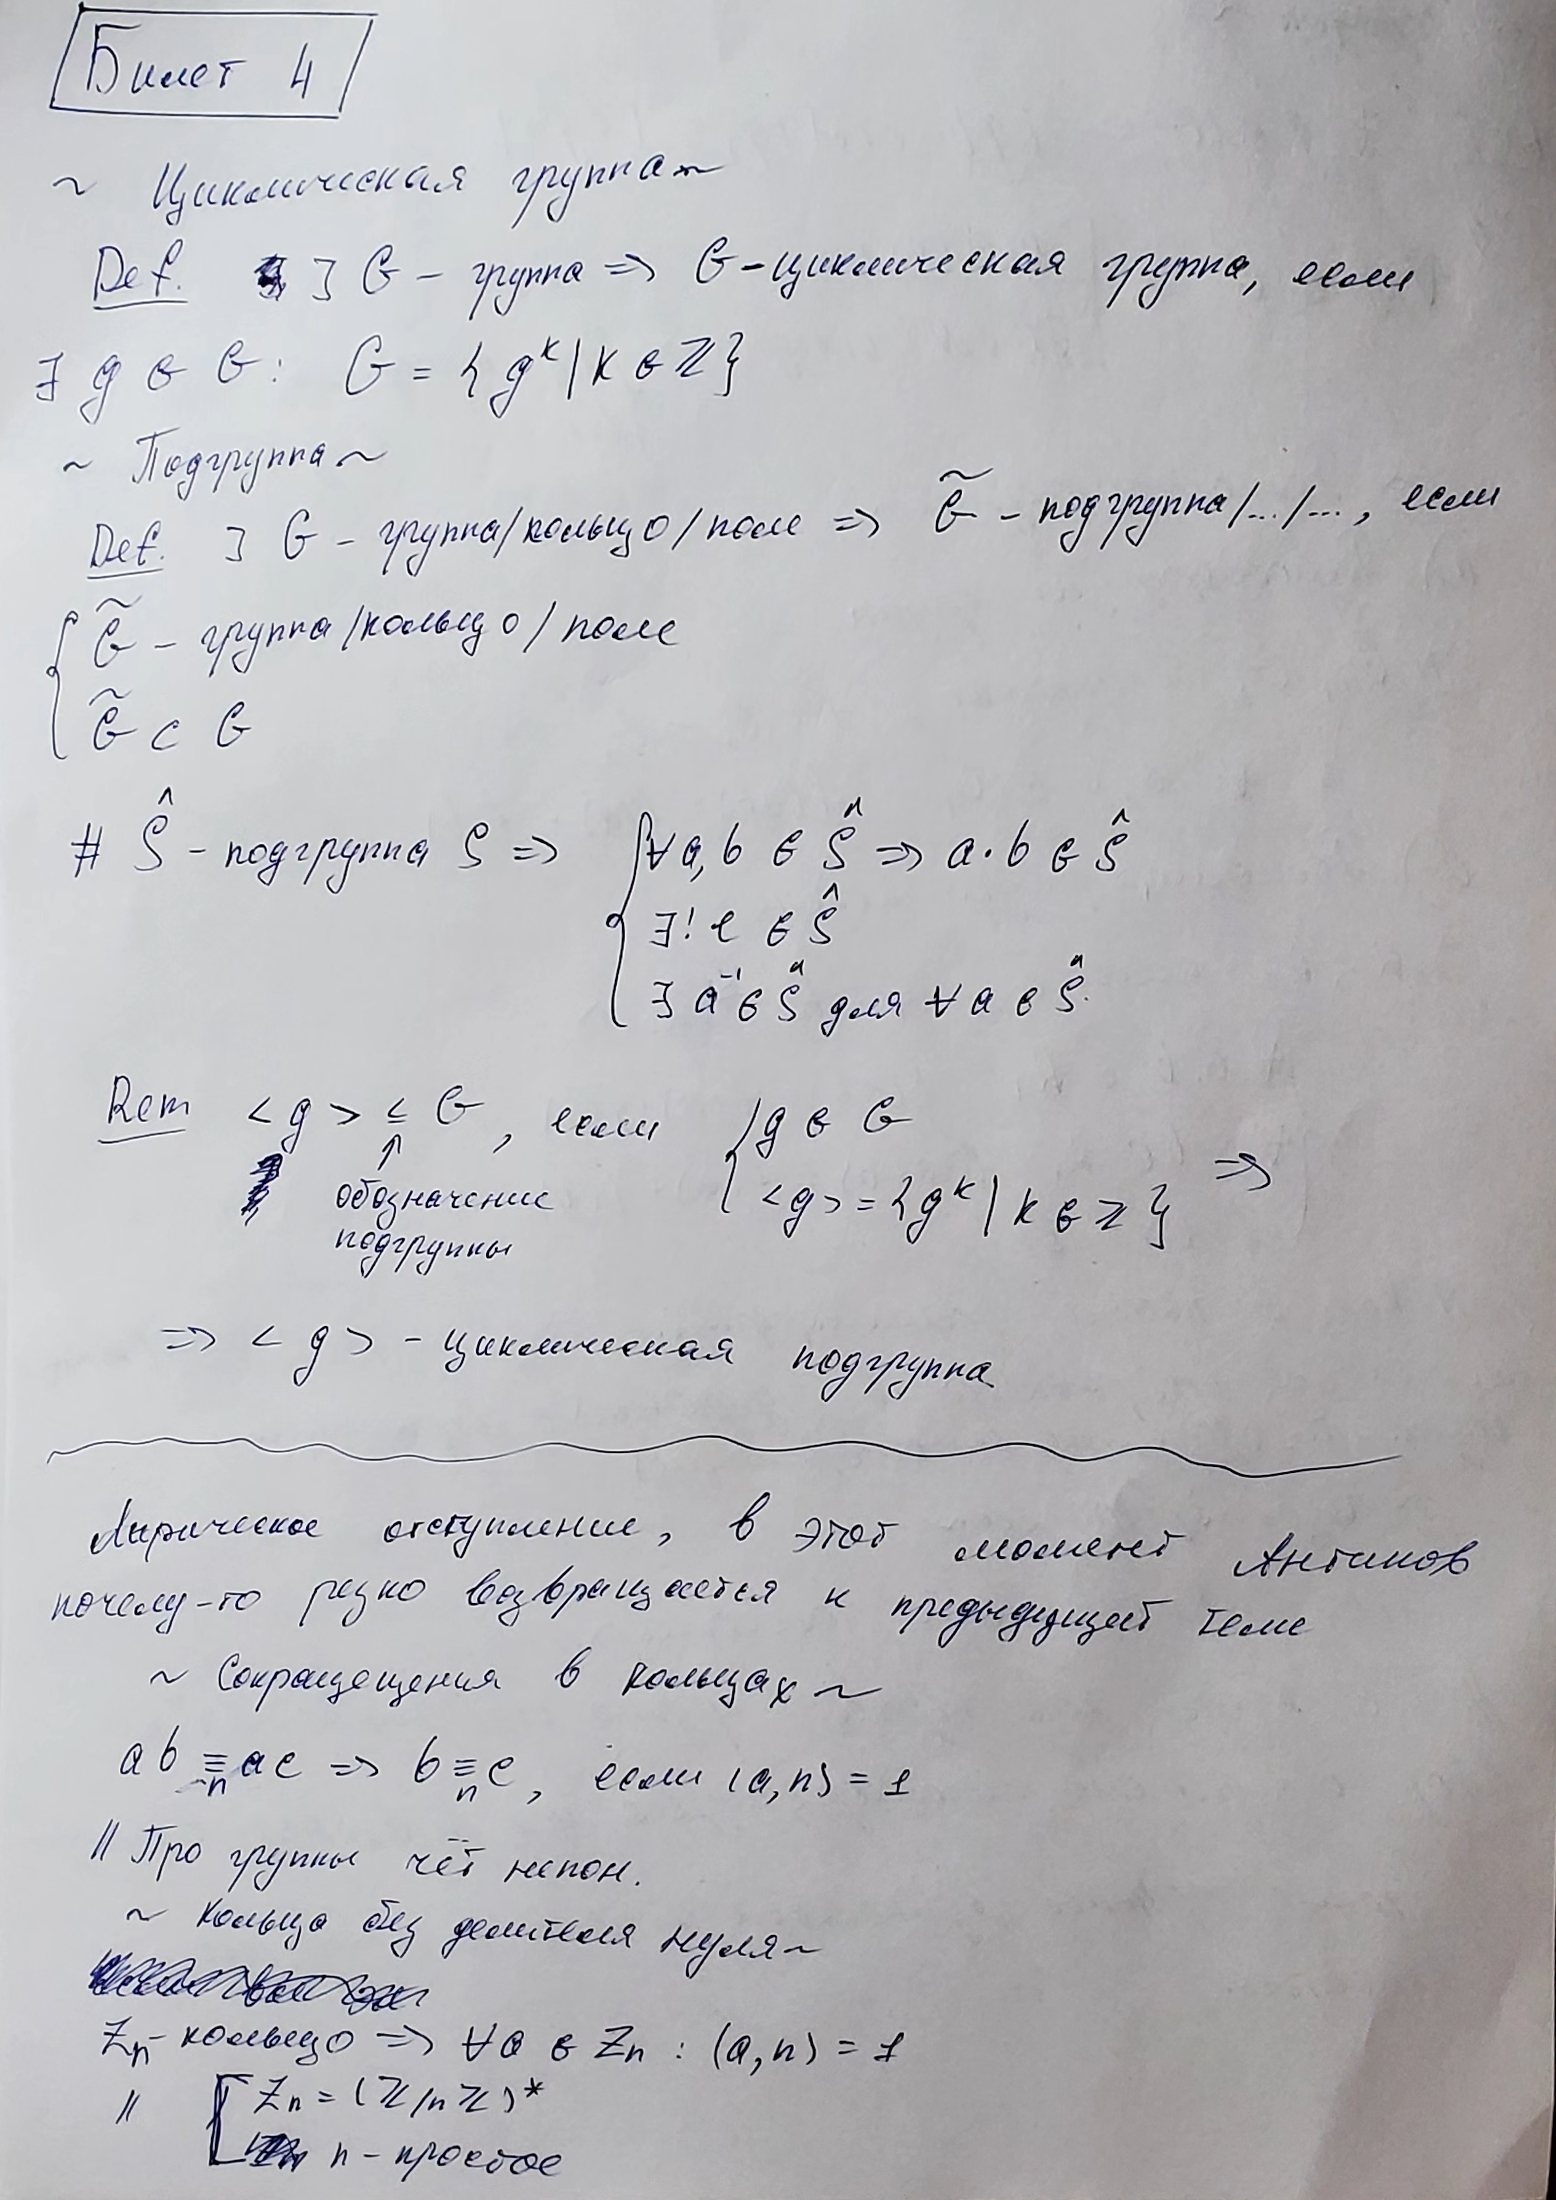 Билет 4
~ Циклическая группа ~
Def. ] G – группа => G – циклическая группа, если
∃ g ∈ G: G = {g^k | k ∈ ℤ}
~ Подгруппа ~
Def. ] G – группа/кольцо/поле => G̃ – подгруппа/.../..., если
{ G̃ – группа/кольцо/поле
G̃ ⊂ G
# Ŝ – подгруппа S => { ∀ a, b ∈ Ŝ => a · b ∈ Ŝ
∃! e ∈ Ŝ
∃ a⁻¹ ∈ Ŝ для ∀ a ∈ Ŝ.
Rem <g> ≤ G, если { g ∈ G
↑ обозначение подгруппы
<g> = {g^k | k ∈ ℤ} =>
=> <g> – циклическая подгруппа
Лирическое отступление, в этот момент Антипов
почему-то резко возвращается к предыдущей теме
~ Сокращещения в кольцах ~
ab ≡ₙ ac => b ≡ₙ c, если (a, n) = 1
// Про группы чёт непон.
~ Кольцо без делителя нуля ~
Zₙ – кольцо => ∀ a ∈ Zₙ : (a, n) = 1
// [ Zₙ = (ℤ/nℤ)*
n – простое